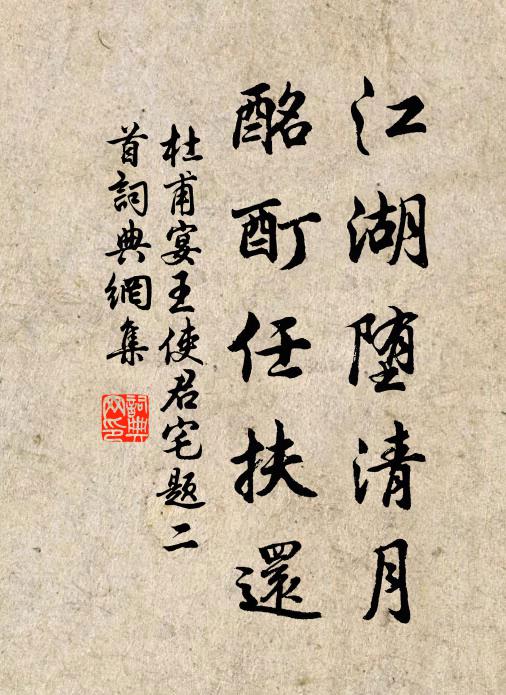 江湖堕清月
酩酊任扶還
杜甫宴王使君宅题二
首詞典網集
詞典網印